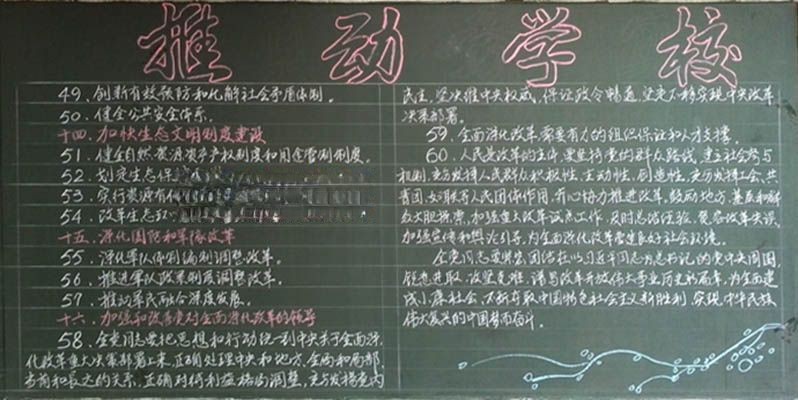 推动学校
49、创新有效预防和化解社会矛盾体制。
50、健全公共安全体系。
十四、加快生态文明制度建设
51、健全自然资源资产产权制度和用途管制制度。
52、划定生态保
53、实行资源有
54、改革生态环
十五、深化国防和军队改革
55、深化军队体制编制调整改革。
56、推进军队政策制度调整改革。
57、推动军民融合深度发展。
十六、加强和改善党对全面深化改革的领导
58、全党同志要把思想和行动统一到中央关于全面深
化改革重大决策部署上来，正确处理中央和地方、全局和局部、
当前和长远的关系，正确对待利益格局调整，充分发扬党内
民主，坚决维中央权威，保证政令畅通，坚定不移实现中央改革
决策部署。
59、全面深化改革需要有力的组织保证和人才支撑。
60、人民是改革的主体，要坚持党的群众路线，建立社会参与
机制，充分发挥人民群众积极性、主动性、创造性，充分发挥工会、共
青团、妇联等人民团体作用，齐心协力推进改革。鼓励地方、基层和群
众大胆探索，加强重大改革试点工作，及时总结经验，宽容改革失误，
加强宣传和舆论引导，为全面深化改革营造良好社会环境。
全党同志要紧密团结在以习近平同志为总书记的党中央周围，
锐意进取，攻坚克难，谱写改革开放伟大事业历史新篇章，为全面建
成小康社会、不断夺取中国特色社会主义新胜利、实现中华民族
伟大复兴的中国梦而奋斗。